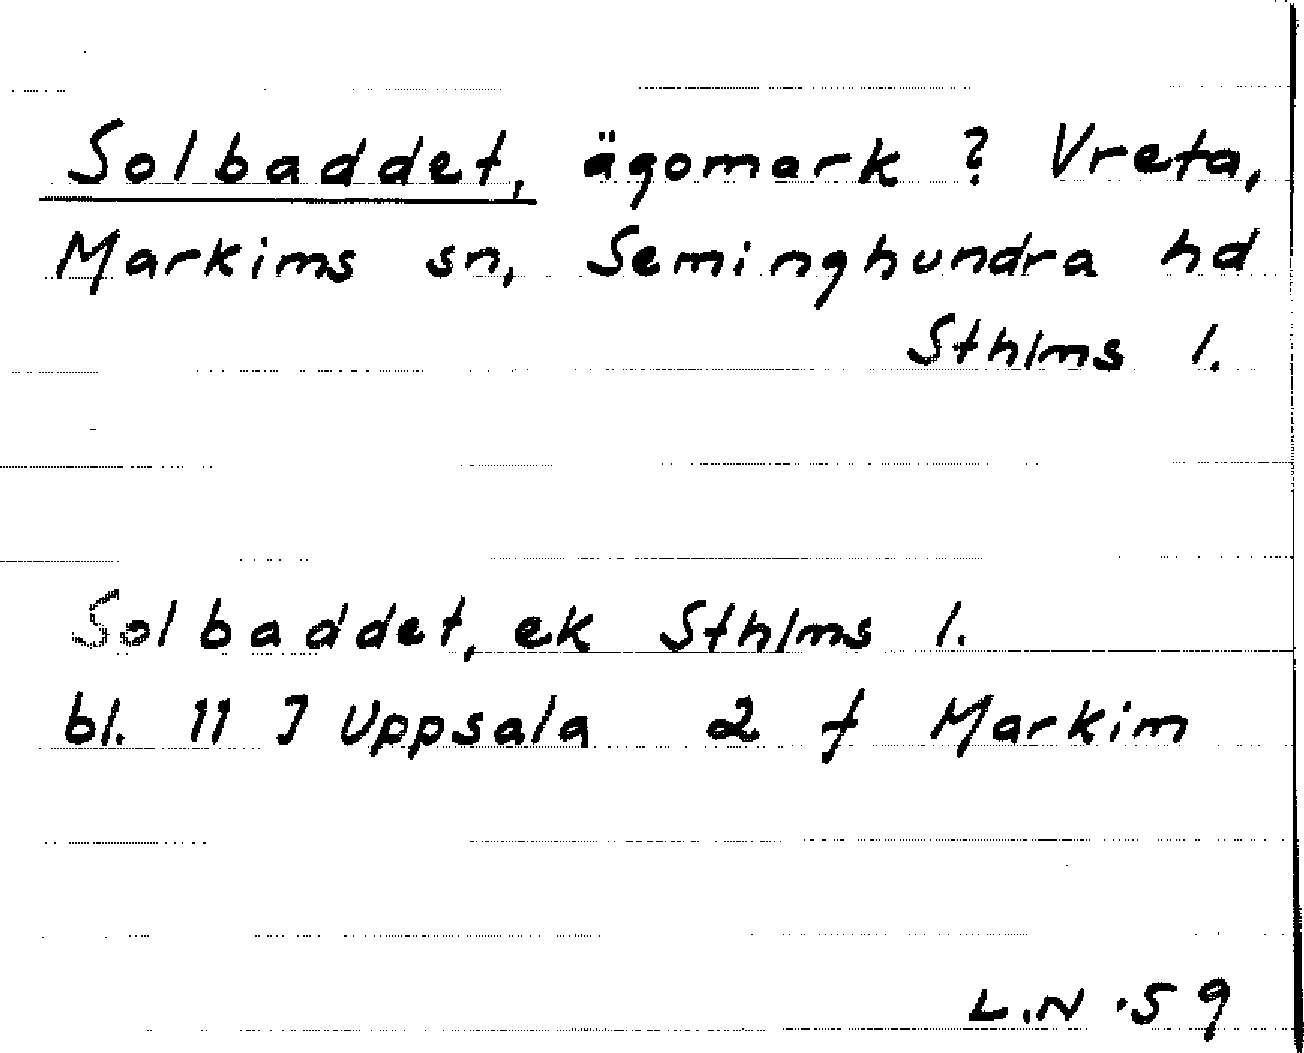 Solbaddet, ägomark ? Vreta,
Markims sn, Seminghundra hd
Sthlms l.
Solbaddet, ek Sthlms l.
bl. 11 J Uppsala 2 f Markim
L.N .59